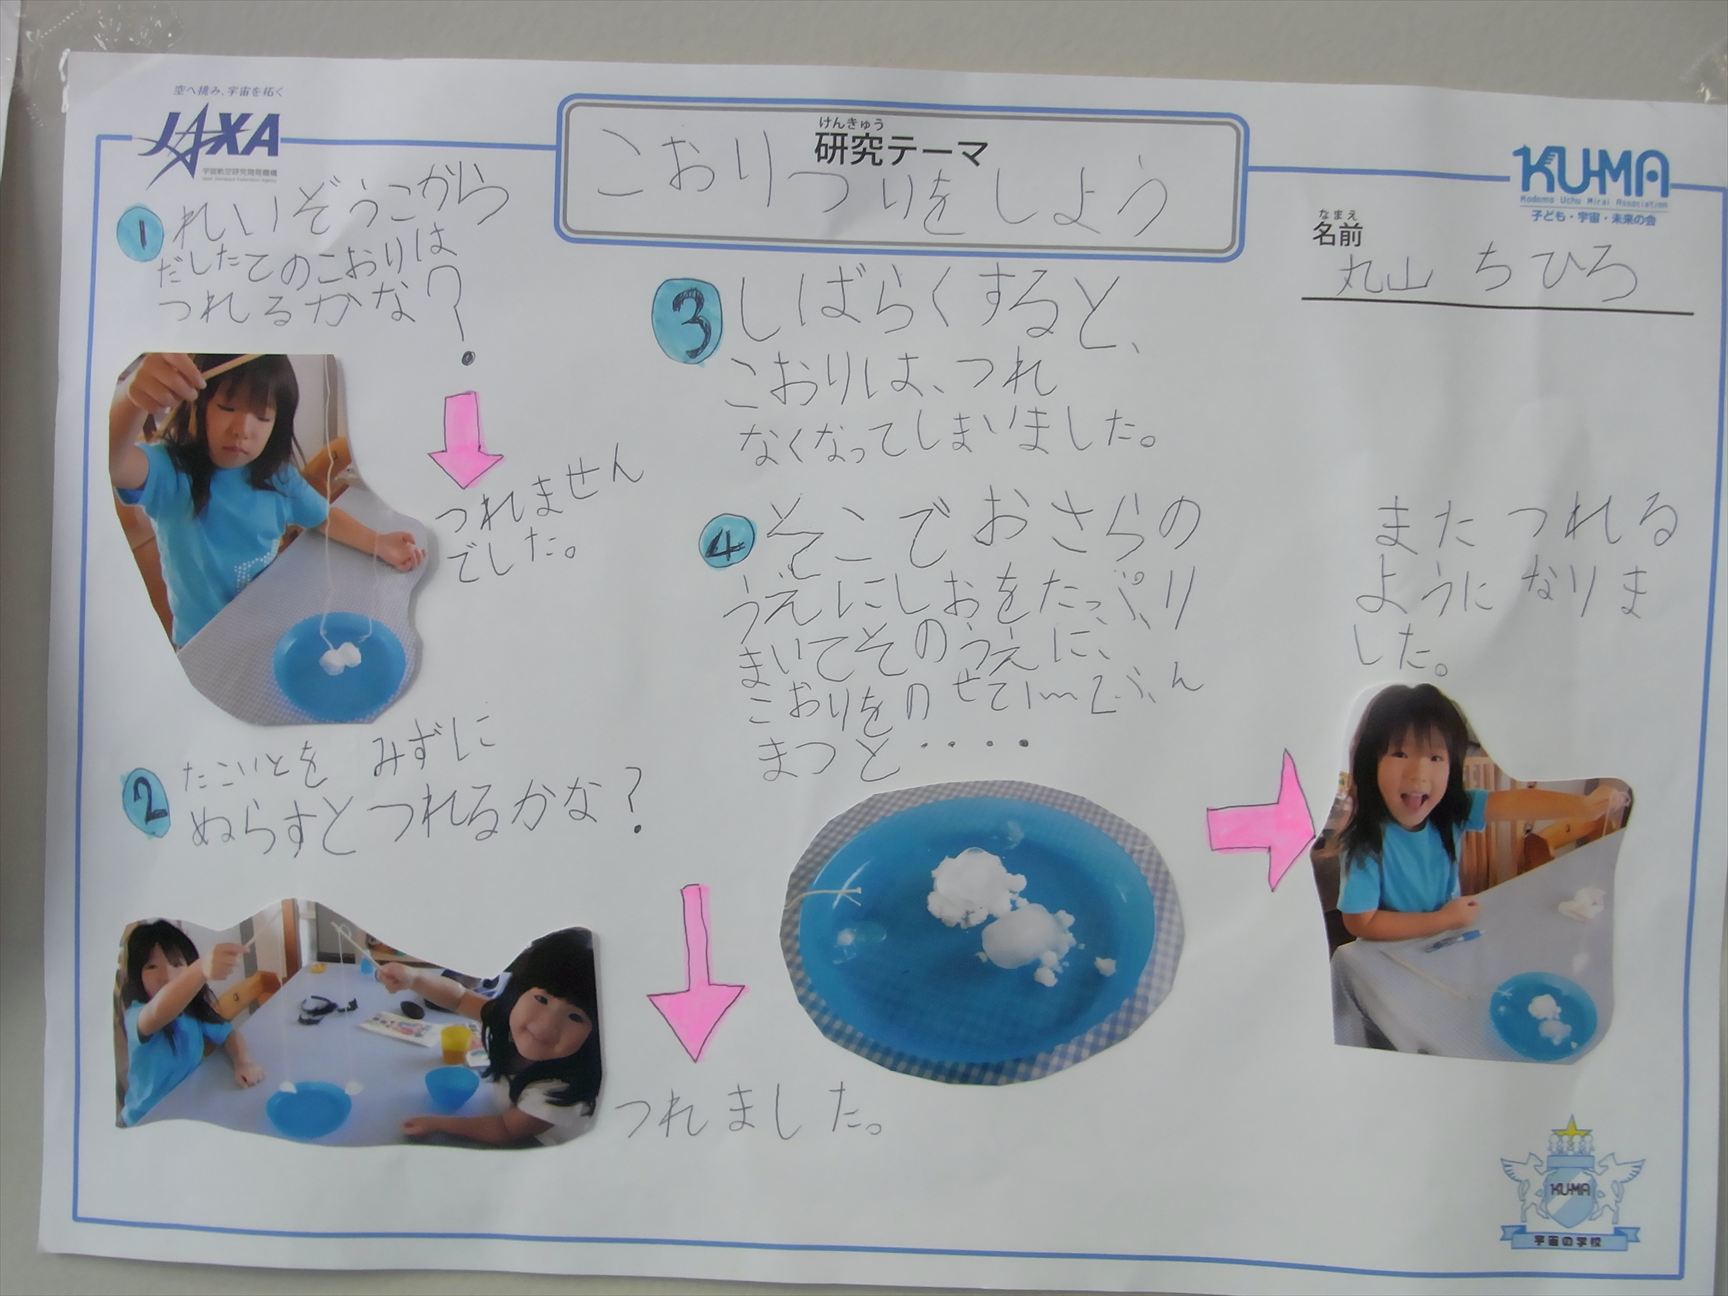 空へ挑み、宇宙を拓く
JAXA
宇宙航空研究開発機構
Japan Aerospace Exploration Agency
けんきゅう
研究テーマ
こおりつりをしよう
KU-MA
Kodomo Uchu Mirai Association
子ども・宇宙・未来の会
なまえ
名前
丸山 ちひろ
1 れいぞうこから
だしたてのこおりは
つれるかな?
つれません
でした。
2 たこいとを みずに
ぬらすとつれるかな?
つれました。
3 しばらくすると、
こおりは、つれ
なくなってしまいました。
4 そこでおさらの
うえにしおをたっぷり
まいてそのうえに、
こおりをのせて1〜2ふん
まつと・・・・
また つれる
ように なりま
した。
KU-MA
宇宙の学校